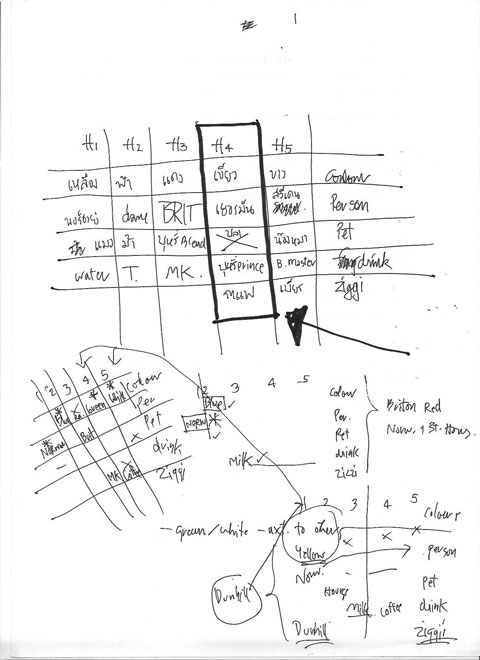 1
H1 H2 H3 H4 H5
เหลือง ฟ้า แดง เขียว ขาว Colour
นอร์เวย์ dane BRIT เยอรมัน สวีเดน Person
แมว ม้า บุหรี่ Blend ปลา น้องหมา Pet
water T. MK. บุหรี่ prince B. master drink
กาแฟ เบียร์ ziggi
2 3 4 5 Colour
Blue Red Green White Per
Norw Brit Pet
drink
MK Coffee Ziggi
2 3 4 5
Blue Colour
Norw Per.
Pet
Milk drink
Ziggi
Briton Red
Norw. 1st. Hous.
- Green/White - nxt. to other
1 2 3 4 5
Colour
Yellow
Now. person
House Pet
Milk Coffee drink
Dunhill
Dunhill Ziggii